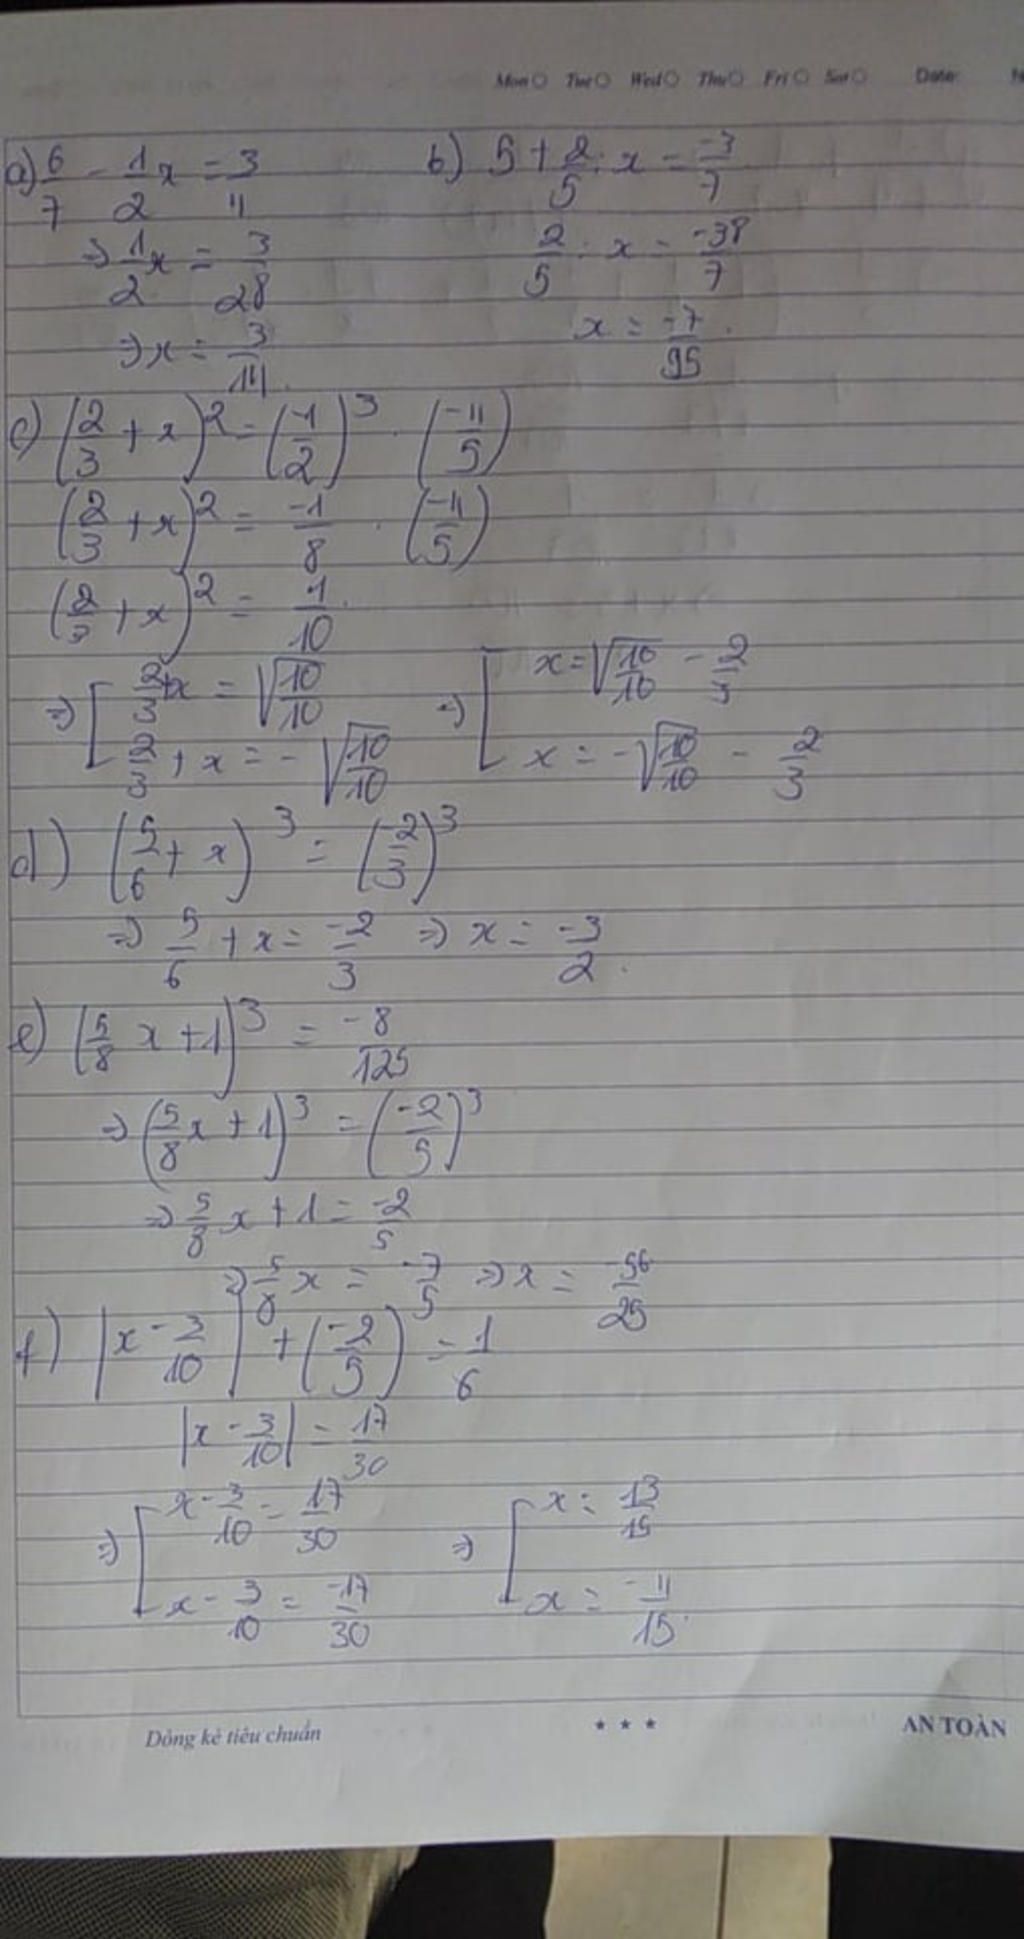 Mon Tue Wed Thu Fri Sat Date
a) 6/7 - 1/2 x = 3/4 b) 5 + 2/5 : x = -3/7
⇒ 1/2 x = 3/28 2/5 : x = -38/7
⇒ x = 3/14 x = -7/95
c) (2/3 + x)² = (-1/2)³ . (-4/5)
(2/3 + x)² = -1/8 . (-4/5)
(2/3 + x)² = 1/10
⇒ [ 2/3 + x = √10/10 ⇒ [ x = √10/10 - 2/3
2/3 + x = - √10/10 x = -√10/10 - 2/3
d) (5/6 + x)³ = (-2/3)³
⇒ 5/6 + x = -2/3 ⇒ x = -3/2
e) (5/8 x + 1)³ = -8/125
⇒ (5/8 x + 1)³ = (-2/5)³
⇒ 5/8 x + 1 = -2/5
⇒ 5/8 x = -7/5 ⇒ x = -56/25
f) |x - 3/10| + (-2/5) = 1/6
|x - 3/10| = 17/30
⇒ [ x - 3/10 = 17/30 ⇒ [ x = 13/15
x - 3/10 = -17/30 x = -11/15
Dòng kẻ tiêu chuẩn * * * AN TOÀN